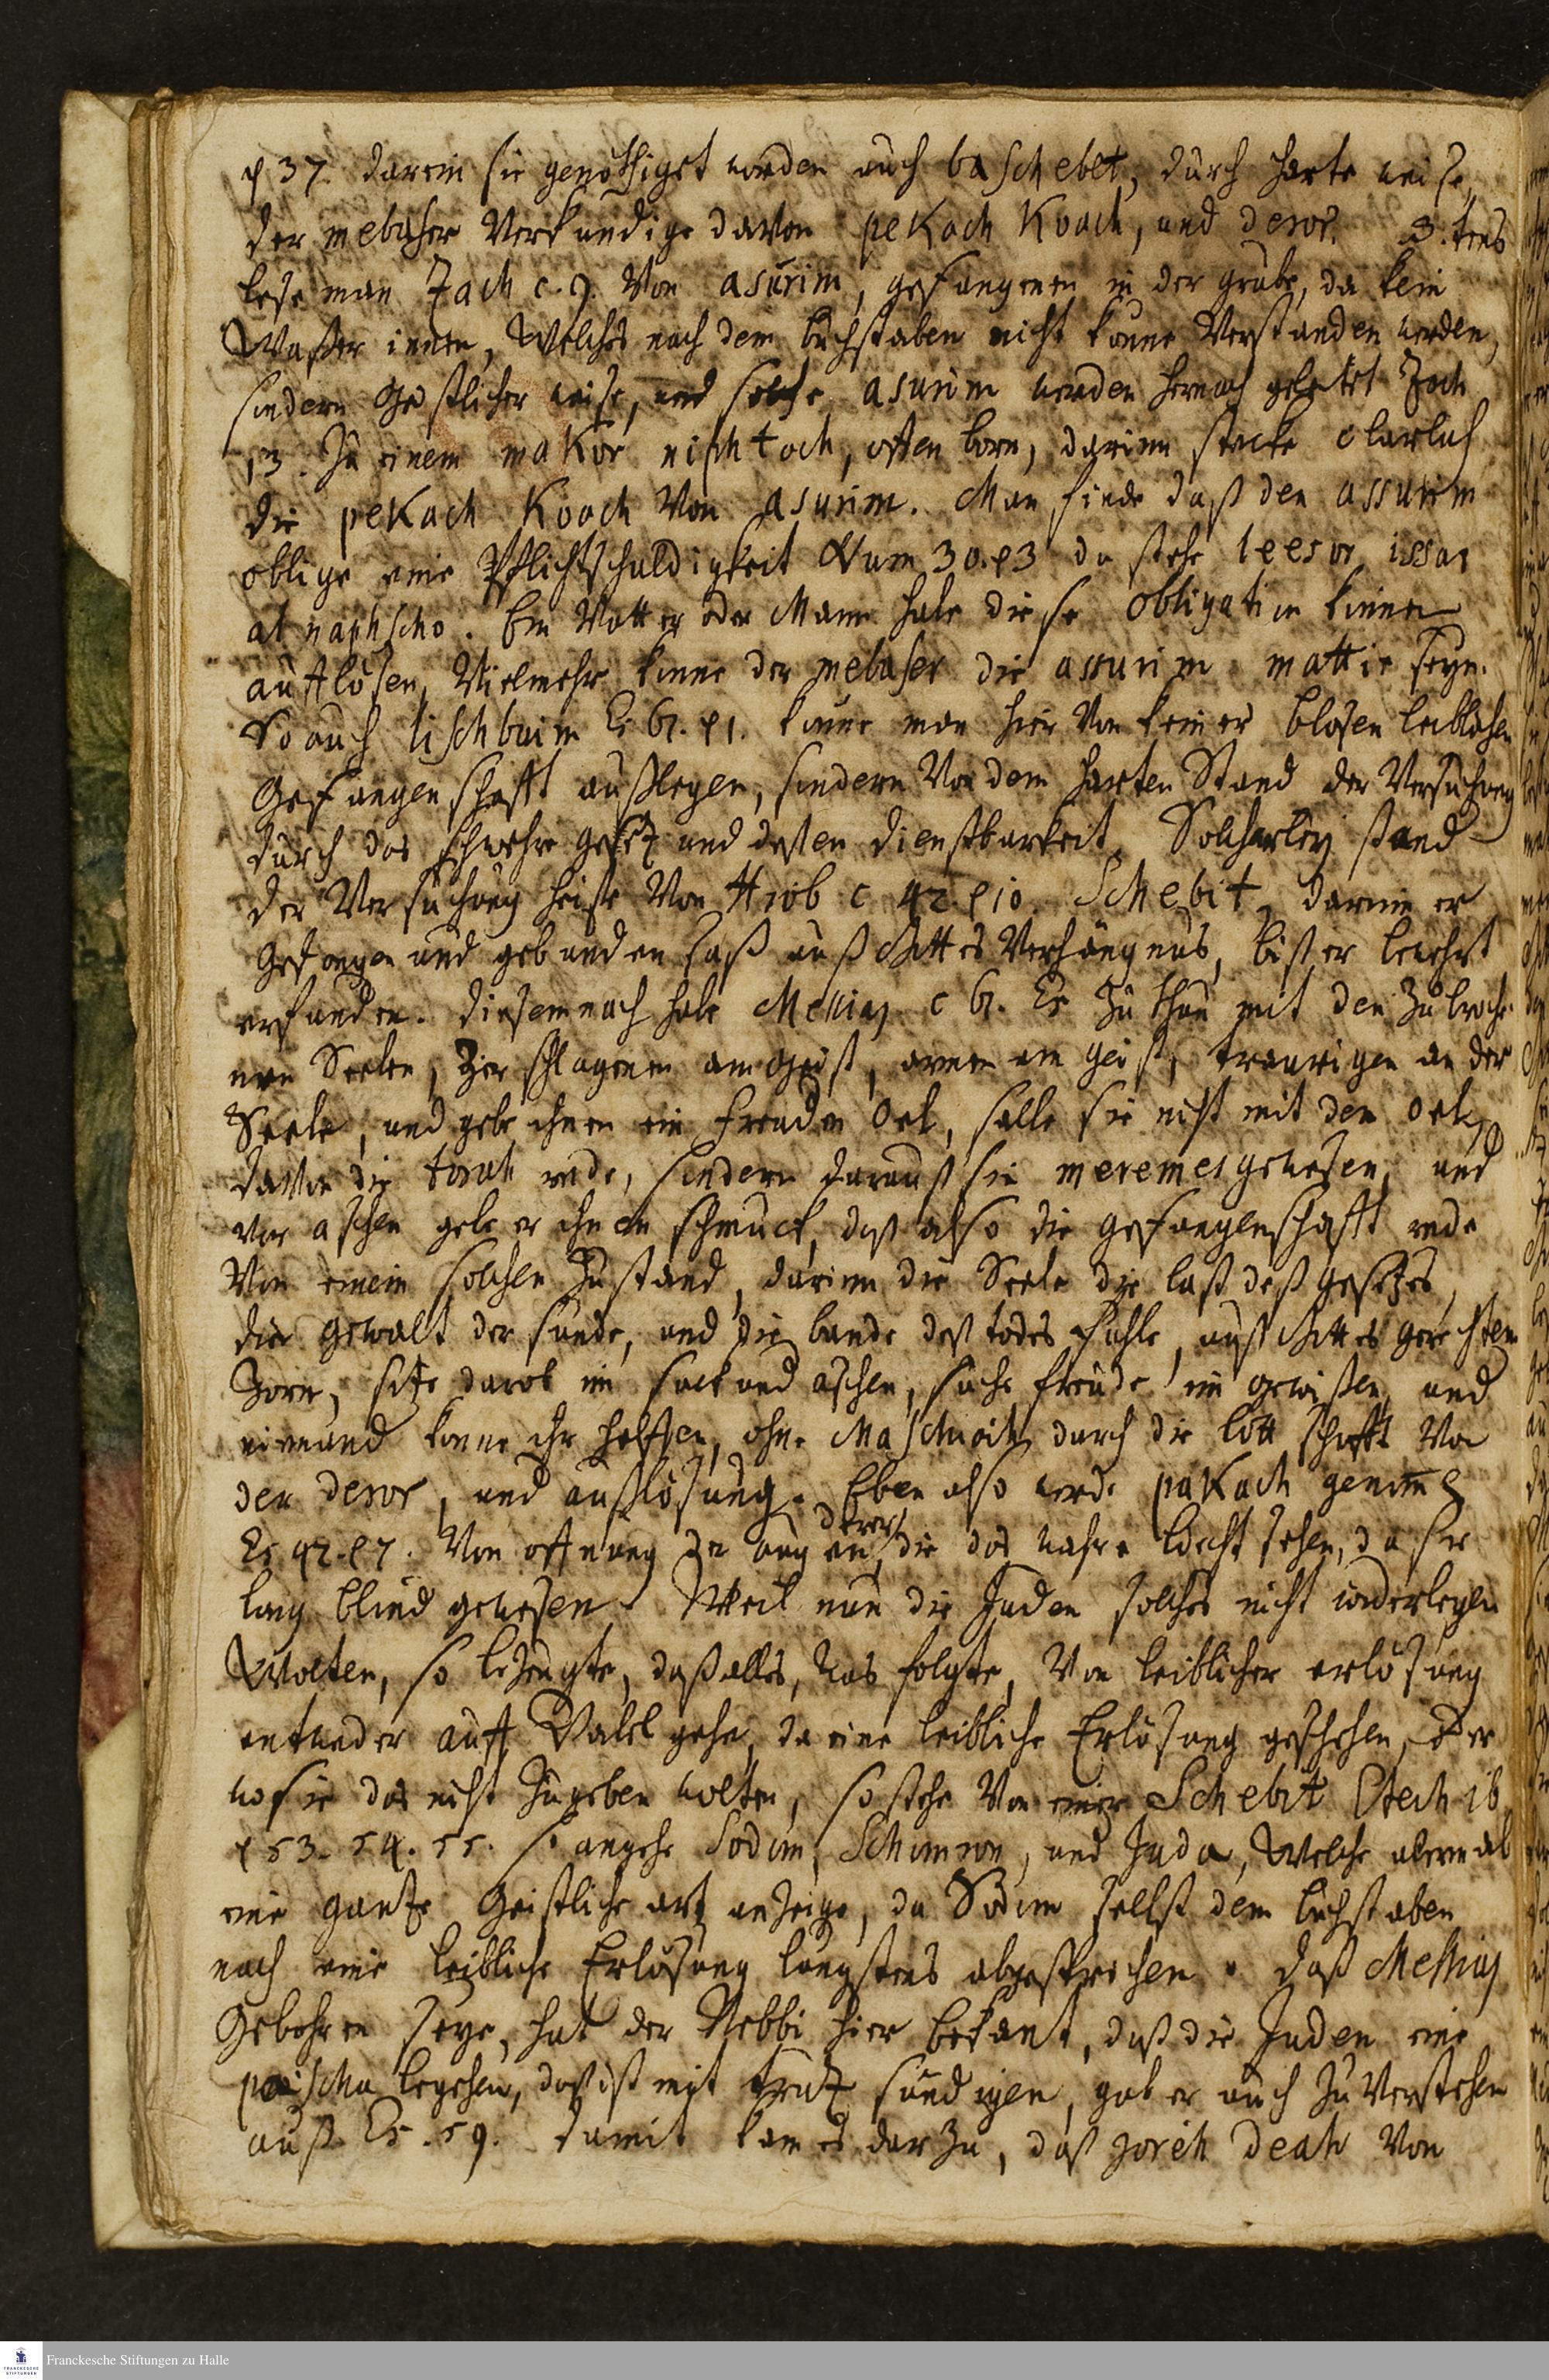 v 37. darein sie genöthiget worden auch baschebet, durch harte weise,
der mebaser Verkündige davon pekach koach, und deror. 3.tens
lese man Zach c. 9. Von asurim, gefangenen in der grube, da kein
Waßer innen, Welches nach dem buchstaben nicht könne Verstanden werden,
sondern Geistlicher weise, und solche asurim werden hernach geleitet Zach
13. Zu einem makor niphtoch, offen born, darinn stecke clarlich
die pekach koach Von asurim. Man finde daß den assurim
oblige eine Pflichtschuldigkeit Num 30. v 3 da stehe leesor issar
al naphscho. Ein Vatter oder Mann habe diese obligation können
aufflösen, Vielmehr könne der mebaser die assurim mattir seyn.
So auch lischbuim Es 61. v 1. könne man hier Von keiner blosen leiblichen
Gefangenschafft außlegen, sondern Von dem harten Stand der Versuchung
durch das schwehre gesetz und deßen dienstbarkeit. Solcherley stand
der Versuchung heise Von Hiob c 42. v 10. Schebit, darinn er
Gefangen und gebunden saß auß Gottes Verhängnus, bist er bewehrt
erfunden. Diesemnach habe Messias c 61. Es zu thun mit den zubroche-
nen Seelen, zerschlagenen am Geist, armen am Geist, traurigen an der
Seele, und gebe ihnen ein freuden Oel, salbe sie nicht mit dem Oel,
davon die torah rede, sondern darauß sie meremes gewesen, und
vor aschen gebe er ihnen schmuck, daß also die gefangenschafft rede
Von einem solchen Zustand, darinn die Seele die last deß gesetzes,
die gewalt der sünde, und die bande deß todes fühle, auß Gottes gerechtem
Zorn, sitze darob im sack und aschen, suche freude im gewißen, und
niemand könne ihr helffen, ohne Maschiach durch die bottschafft Von
der deror, und außlösung. Eben also werde pakach genommen
Es 42. v 7. Von öffnung der augen derer, die das wahre Liecht sehen, da sie
lang blind gewesen. Weil nun die Juden solches nicht wiederlegen
Wolten, so bezeugte, daß alles, was folgte, Von leiblicher erlösung
entweder auff Babel gehe, da eine leibliche Erlösung geschehen, oder
wo sie das nicht zugeben wolten, so stehe Von einer Schebit Ezech 16
v 53. 54. 55. so angehe Sodom, Schomron, und Juda, Welche abermal
eine gantze Geistliche art anzeige, da Sodom selbst dem buchstaben
nach eine leibliche Erlösung längstens abgesprochen. Daß Messias
Gebohren seye, hat der Rebbi hier bekant, daß die Juden eine
paischa begehen, das ist mit trutz sündigen, gab er auch zu Verstehen
auß Es. 59. damit kam es darzu, daß zoreh deah Von
Franckesche Stiftungen zu Halle